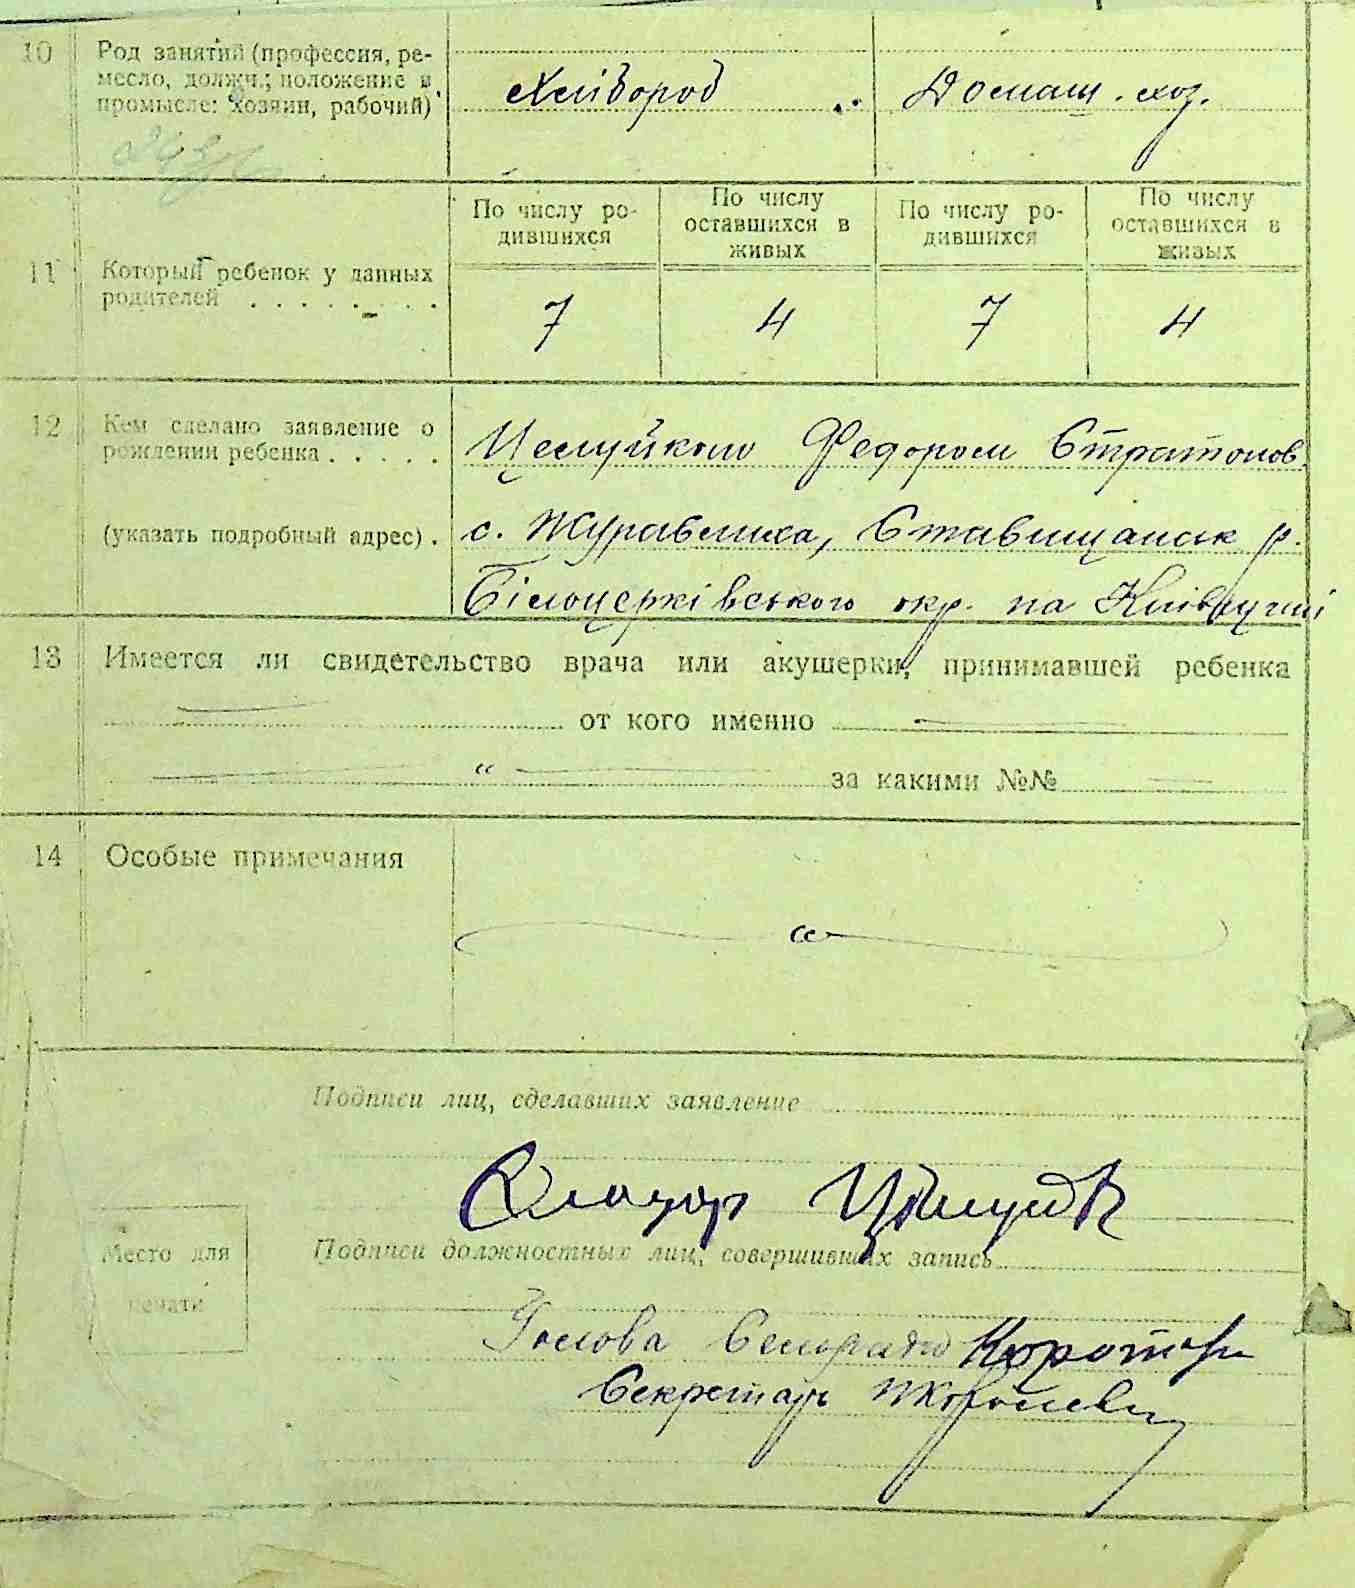 10 Род занятий (профессия, ре-
месло, должн.; положение в
промысле: хозяин, рабочий)
Хлібороб Домаш. хоз.
11 Который ребенок у данных
родителей . . . . . . . .
По числу ро-
дившихся
По числу
оставшихся в
живых
По числу ро-
дившихся
По числу
оставшихся в
живых
7 4 7 4
12 Кем сделано заявление о
рождении ребенка . . . . .
(указать подробный адрес) .
Целуйком Федором Стратонов.
с. Журавлиха, Ставищанськ р.
Білоцерківського окр. на Київщині
13 Имеется ли свидетельство врача или акушерки, принимавшей ребенка
от кого именно
за какими №№
14 Особые примечания
Подписи лиц, сделавших заявление
Место для
печати
Подписи должностных лиц, совершивших запись
Голова Сельради
Секретарь